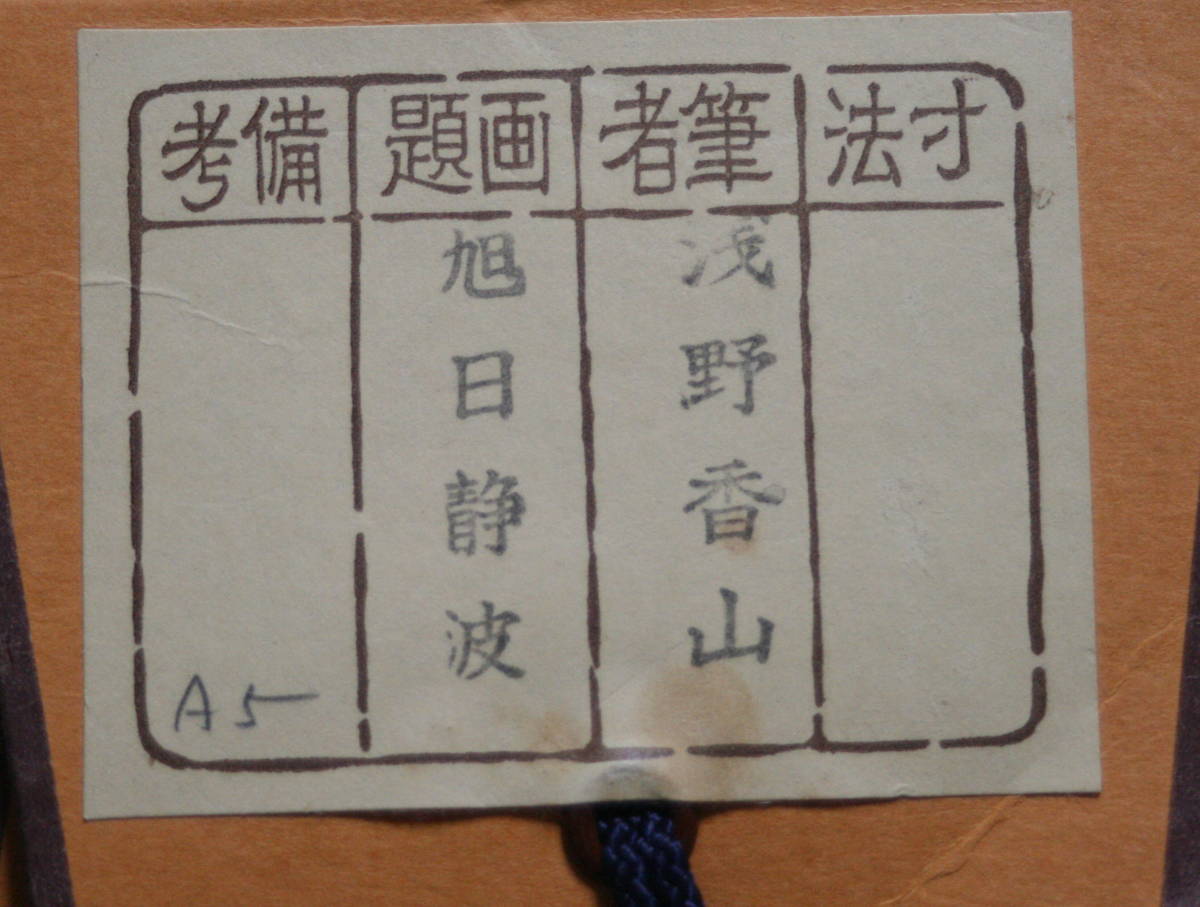 寸法
筆者
浅野香山
画題
旭日静波
備考
A5